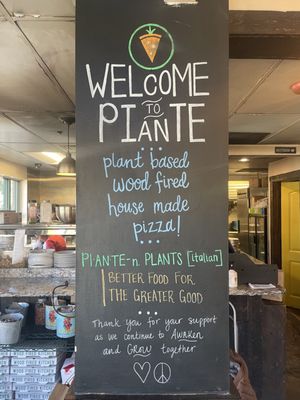 WELCOME
TO
PIANTE
plant based
wood fired
house made
pizza!
PIANTE-n. PLANTS [italian]
BETTER FOOD FOR
THE GREATER GOOD
Thank you for your support
as we continue to Awaken
and GROW together